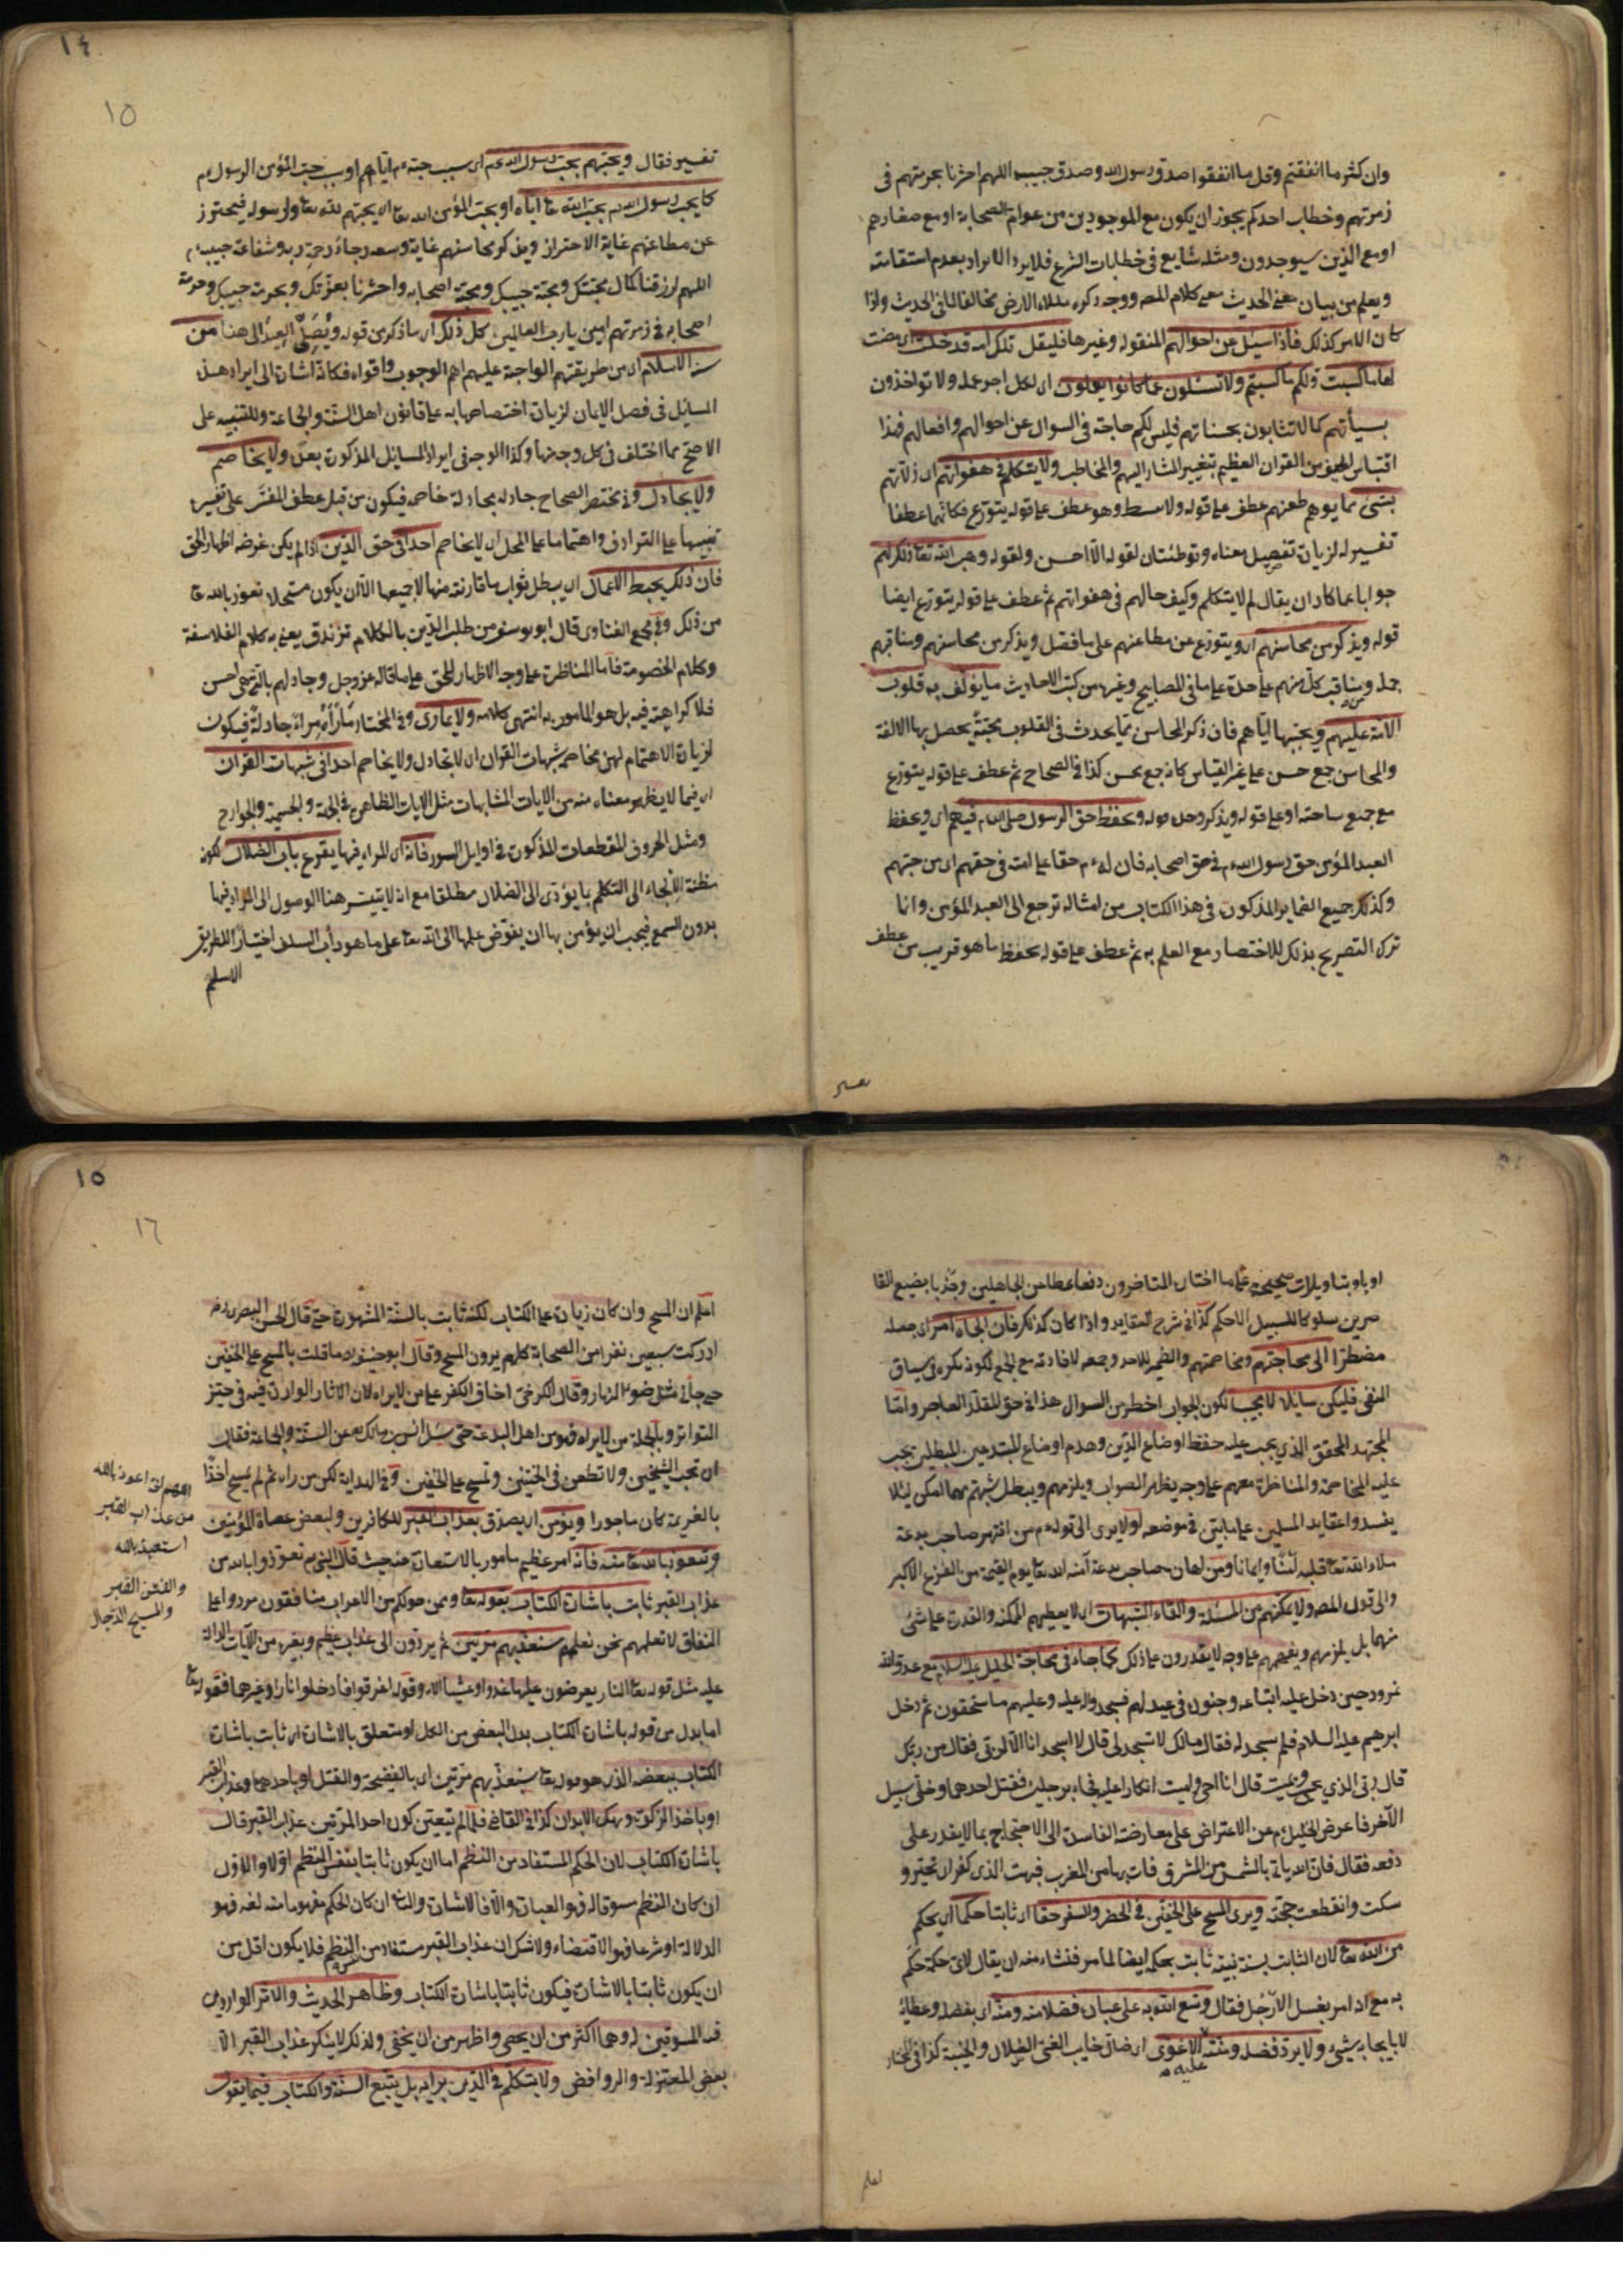 وان كثر ما انفقتم وقل ما انفقوا صدق رسول الله وصدق حبيبه اللهم احشرنا بحرمتهم فى
زمرتهم وخطاب احدكم يجوز ان يكون مع الموجودين من عوام الصحابة او مع صغارهم
او مع الذين سيوجدون ومثله شايع فى خطابات الشرع فلا يرد الايراد بعدم استقامته
ويعلم من بيان معنى الحديث معنى كلام المص ووجه ذكره ملاء الارض مخالفا لما فى الحديث واذا
كان الامر كذلك فاذا سئل عن احوالهم المنقولة وغيرها فليقل تلك امة قد خلت اى مضت
لها ما كسبت ولكم ما كسبتم ولا تسئلون عما كانوا يعملون اى لكل اجر عمله ولا تواخذون
بسيأتهم كما لا تثابون بحسناتهم فليس لكم حاجة فى السوال عن احوالهم وافعالهم فهذا
اقتباس لطيف من القران العظيم بتغيير المشار اليهم والمخاطب ولا يتكلم فى هفواتهم اى زلاتهم
بشئ مما يوهم طعنهم عطف على قوله ولا يبسط وهو عطف على قوله يتورع فكانهما عطفا
تفسير له لزيادة تفصيل معناه وتوطئتان لقوله الا احسن ولقوله وهب الله تعا ذلك لهم
جوابا عما كاد ان يقال لم لا يتكلم وكيف حالهم فى هفواتهم ثم عطف على قوله يتورع ايضا
قوله ويذكر من محاسنهم اى ويتورع عن مطاعنهم على ما فصل ويذكر من محاسنهم ومناقبهم
جملة ومناقب كل منهم على حدة على ما فى المصابيح وغيره من كتب الاحاديث ما يؤلف به قلوب
الامة عليهم ويحببها اياهم فان ذكر المحاسن مما يحدث فى القلوب محبة يحصل بها الالفة
والمحاسن جمع حسن على غير القياس كانه جمع محسن كذا فى الصحاح ثم عطف على قوله يتورع
مع جميع ساحته او على قوله ويذكر وحده قوله ويحفظ حق الرسول صلى الله م فيهم اى ويحفظ
العبد المؤمن حق رسول الله م فى حق اصحابه فان له م حقا على امته فى حقهم اى من جهتهم
وكذلك جميع الضماير المذكورة فى هذا الكتاب من امثاله ترجع الى العبد المؤمن وانما
ترك التصريح بذلك للاختصار مع العلم به ثم عطف على قوله يحفظ ما هو قريب من عطف
تفسير
١٤
١٥
تفسير فقال ويحبهم بحب رسول الله م اى بسبب حبه م اياهم او بسبب حب المؤمن الرسول م
كما يحب رسول الله م بحب الله تعا اياه او بحب المؤمن الله تعا اى يحبهم لله تعا ولرسوله فيحترز
عن مطاعنهم غاية الاحتراز ويذكر محاسنهم غاية وسعه رجاء رحمة ربه وشفاعة حبيبه م
اللهم ارزقنا كمال محبتك ومحبة حبيبك ومحبة اصحابه واحشرنا بعزتك وبحرمة حبيبك وحرمة
اصحابه فى زمرتهم امين يا رب العالمين كل ذلك اى ما ذكر من قوله ويصلى العبد الى هنا من
سنة الاسلام اى من طريقتهم الواجبة عليهم اهم الوجوب واقواه فكانه اشارة الى ايراد هذه
المسائل فى فصل الايمان لزيادة اختصاصها به على قانون اهل السنة والجماعة وللتنبيه على
الاصح مما اختلف فى كل وجه منها وكذا الوجه فى ايراد المسايل المذكورة بعد ولا يخاصم
ولا يجادل وفى مختصر الصحاح جادله مجادلة خاصمه فيكون من قبيل عطف المفسر على تفسيره
تنبيها على الترادف واهتماما على المحل اى لا يخاصم احدا فى حق الدين اذا لم يكن غرضه اظهار الحق
فان ذلك يحبط الاعمال اى يبطل ثواب ما قارنته منها لا جميعها الا ان يكون مستحلا نعوذ بالله تعا
من ذلك وفى مجمع الفتاوى قال ابو يوسف من طلب الدين بالكلام تزندق يعنى به كلام الفلاسفة
وكلام الخصومة فاما المناظرة على وجه الاظهار للحق على ما قاله عز وجل وجادلهم بالتى هى احسن
فلا كراهية فيه بل هو المامور به انتهى كلامه ولا يمارى وفى المختار ماراه مراء جادله فيكون
لزيادة الاهتمام لهن مخاصمة شبهات القران اى لا يجادل ولا يخاصم احدا فى شبهات القران
اى فيما لا يظهر معناه منه من الايات المتشابهات مثل الايات الظاهرة فى الجهة والجسمية والجوارح
ومثل الحروف المقطعات المذكورة فى اوايل السور فانه اى المراء فيها يقرع باب الضلال لكونه
مظنة الالجاء الى التكلم بما يؤدى الى الضلال مطلقا مع انه لا يتيسر هنا الوصول الى المراد فيها
بدون السمع فيجب ان يؤمن بها ان يفوض علمها الى الله تعا على ما هو دأب السلف اختيارا للطريق
الاسلم
او ياول بتاويلات صحيحة على ما اختاره المتاخرون دفعا لمطاعن الجاهلين وجذبا بضبع القا
صرين سلوكا للسبيل الاحكم كذا فى شرح العقايد واذا كان كذلك فان الجاه امر اى جعله
مضطرا الى محاجتهم ومخاصمتهم والضمير للاحد وجمعه لافادته مع الجمع لكونه نكرة فى سياق
النفى فليكن سايلا لا مجيبا لكون الجواب اخطر من السوال هذا فى حق المقلد العاجز واما
المجتهد المحقق الذي يجب عليه حفظ اوضاع الدين وهدم اوضاع المبتدعين المبطلين يجب
عليه المخاصمة والمناظرة معهم على وجه يظهر الصواب ويلزمهم ويبطل شبهتم مهما امكن ليلا
يفسدوا عقايد المسلمين على ما يأتى فى موضعه اولا يرى الى قوله م من انتهر صاحب بدعة
ملاء الله تعا قلبه امنا وايمانا ومن اهان صاحب بدعة آمنه الله تعا يوم القيمة من الفزع الاكبر
والى قول المص ولا يمكنهم من المسئلة والقاء الشبهات اى لا يعطيهم المكنة والقدرة على شئ
منهما بل يلزمهم ويفحمهم على وجه لا يقدرون على ذلك كما جاء فى محاجة الخليل عليه السلام مع عدو الله
نمرود حين دخل عليه اتباعه وجنوده فى عيد لهم فسجدوا له عليه وعليهم ما يستحقون ثم دخل
ابرهيم عليه السلام فلم يسجد له فقال مالك لا تسجد لى قال لا اسجد انا الا لربى فقال من ربك
قال ربى الذي يحيى ويميت قال انا احيى واميت انكارا عليه فجاء برجلين فقتل احدهما وخلى سبيل
الآخر فاعرض الخليل م عن الاعتراض على معارضته الفاسدة الى الاحتجاج بما لا يقدر على
دفعه فقال فان الله يأتى بالشمس من المشرق فات بها من المغرب فبهت الذى كفر اى تحير و
سكت وانقطعت حجته ويرى المسح على الخفين فى الحضر والسفر حقا اى ثابتا حكما اى بحكم
من الله تعا لان الثابت بسنة نبيه ثابت بحكمه ايضا لما مر فنشاء منه ان يقال لاى حكمة حكم
به مع انه امر بغسل الارجل فقال وسع الله به على عباده فضلا منه ومنة اى بفضل وعطاء
لا بايجاب شيئ ولا يرد فضله ومنته عليه الا غوى اى ضال خايب الغى الضلال والخيبة كذا فى المختار
اعلم
١٥
١٦
اعلم ان المسح وان كان زيادة على الكتاب لكنه ثابت بالسنة المشهورة حتى قال الحسن البصرى رح
ادركت سبعين نفرا من الصحابة كلهم يرون المسح وقال ابو حنيفة ما قلت بالمسح على الخفين
حتى جاءنى مثل ضوء النهار وقال الكرخى اخاف الكفر على من لا يراه لان الاثار الواردة فيه فى حيز
التواتر وبالجملة من لا يراه فهو من اهل البدعة حتى سئل انس بن مالك عن السنة والجماعة فقال
ان تحب الشيخين ولا تطعن فى الختنين وتمسح على الخفين وفى الهداية لكن من راه ثم لم يمسح اخذا
بالعزيمة كان ماجورا ويؤمن اى يصدق بعذاب القبر للكافرين ولبعض عصاة المؤمنين
وتعوذ بالله تعا منه فانه امر عظيم مامور بالاستعاذة منه حيث قال النبى م تعوذوا بالله من
عذاب القبر ثابت باشارة الكتاب بقوله تعا وممن حولكم من الاعراب منافقون مردوا على
النفاق لا تعلمهم نحن نعلمهم سنعذبهم مرتين ثم يردون الى عذاب عظيم وبغيره من الآيات الدالة
عليه مثل قوله تعا النار يعرضون عليها غدوا وعشيا الاية وقوله اغرقوا فادخلوا نارا وغيرها فقوله تعا
اما بدل من قوله باشارة الكتاب بدل البعض من الكل او متعلق بالاشارة اى ثابت باشارة
الكتاب ببعضه الذى هو قوله تعا سنعذبهم مرتين اى بالفضيحة والقتل او باحدهما وعذاب القبر
او باخذ الزكوة ونهك الابدان كذا فى القاضى فلما لم يتعين كون احد المرتين عذاب القبر قال
باشارة الكتاب لان الحكم المستفاد من النظم اما ان يكون ثابتا بنفس النظم اولا والاول
ان كان النظم مسوقا له فهو العبارة والا فالاشارة والثانى ان كان الحكم مفهوما منه لغة فهو
الدلالة او شرعا فهو الاقتضاء ولا شك ان عذاب القبر مستفاد من النظم فلا يكون اقل من
ان يكون ثابتا بالاشارة فيكون ثابتا باشارة الكتاب وظاهر الحديث والاثر الواردين
فيه المسوقين له وهما اكثر من ان يحصى واظهر من ان يخفى ولذلك لا ينكر عذاب القبر الا
بعض المعتزلة والروافض ولا يتكلم فى الدين برايه بل يتبع السنة والكتاب فيما يقول
اللهم انى اعوذ بالله
من عذاب القبر
استعيذ بالله
والفتن القبر
والمسيح الدجال